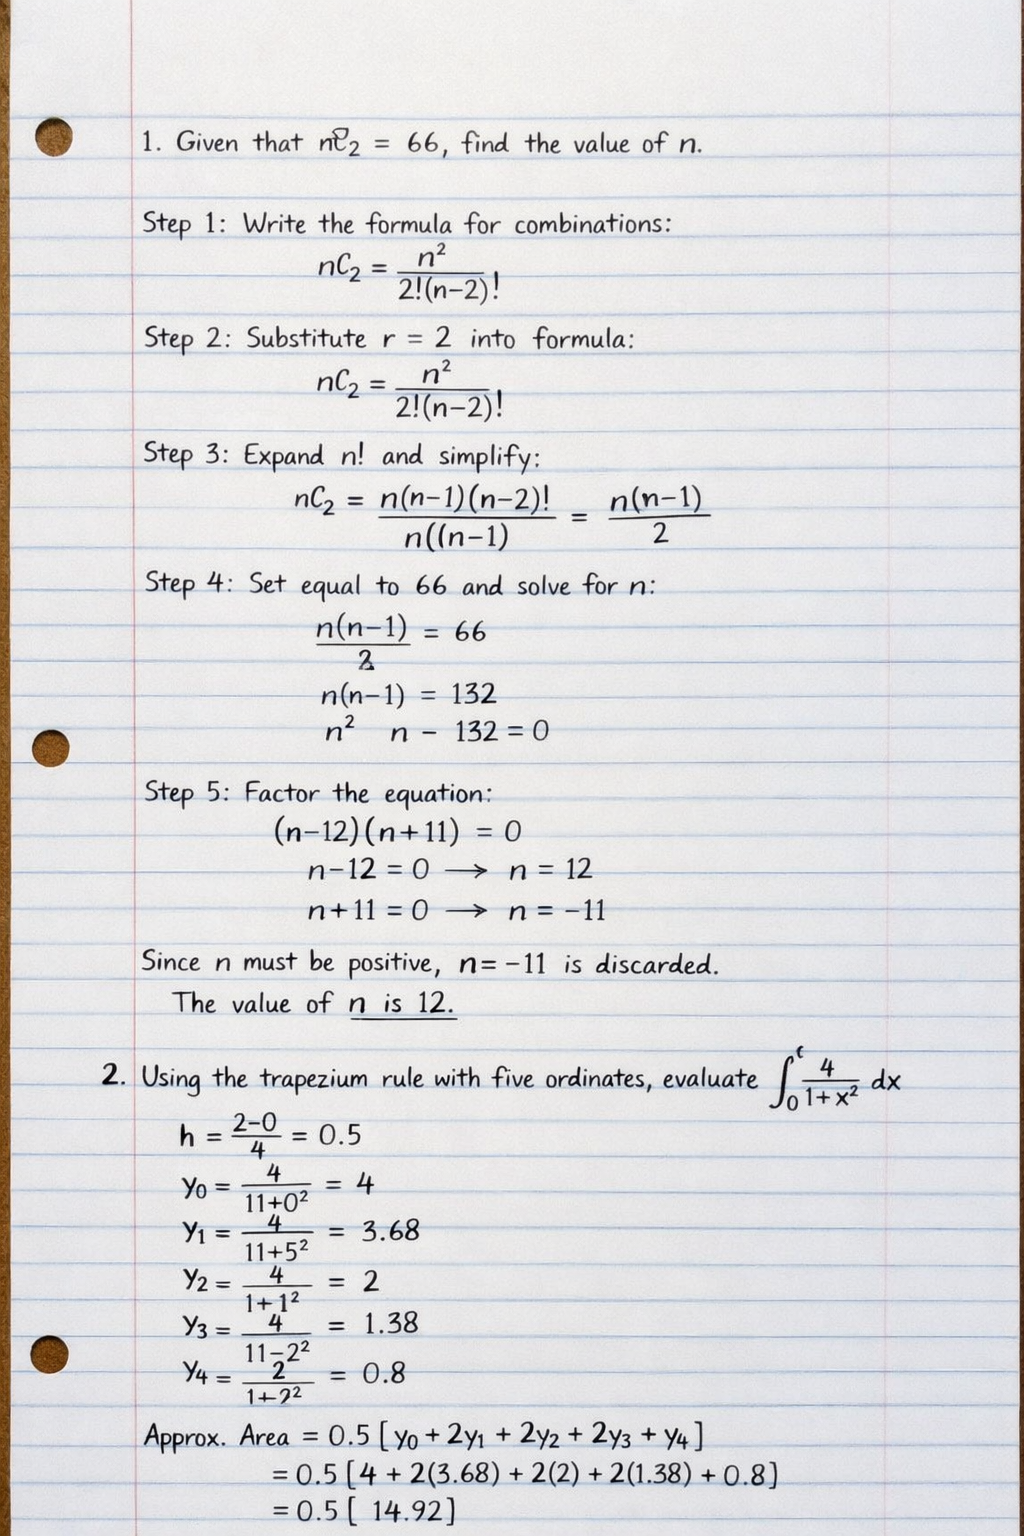 1. Given that nC₂ = 66, find the value of n.
Step 1: Write the formula for combinations:
nC₂ = n² / 2!(n-2)!
Step 2: Substitute r = 2 into formula:
nC₂ = n² / 2!(n-2)!
Step 3: Expand n! and simplify:
nC₂ = n(n-1)(n-2)! / n((n-1) = n(n-1) / 2
Step 4: Set equal to 66 and solve for n:
n(n-1) / 2 = 66
n(n-1) = 132
n² n - 132 = 0
Step 5: Factor the equation:
(n-12)(n+11) = 0
n-12 = 0 → n = 12
n+11 = 0 → n = -11
Since n must be positive, n= -11 is discarded.
The value of n is 12.
2. Using the trapezium rule with five ordinates, evaluate ∫₀ 4 / 1+x² dx
h = 2-0 / 4 = 0.5
y₀ = 4 / 11+0² = 4
y₁ = 4 / 11+5² = 3.68
y₂ = 4 / 1+1² = 2
y₃ = 4 / 11-2² = 1.38
y₄ = 2 / 1+2² = 0.8
Approx. Area = 0.5 [y₀ + 2y₁ + 2y₂ + 2y₃ + y₄]
= 0.5 [4 + 2(3.68) + 2(2) + 2(1.38) + 0.8]
= 0.5 [ 14.92]